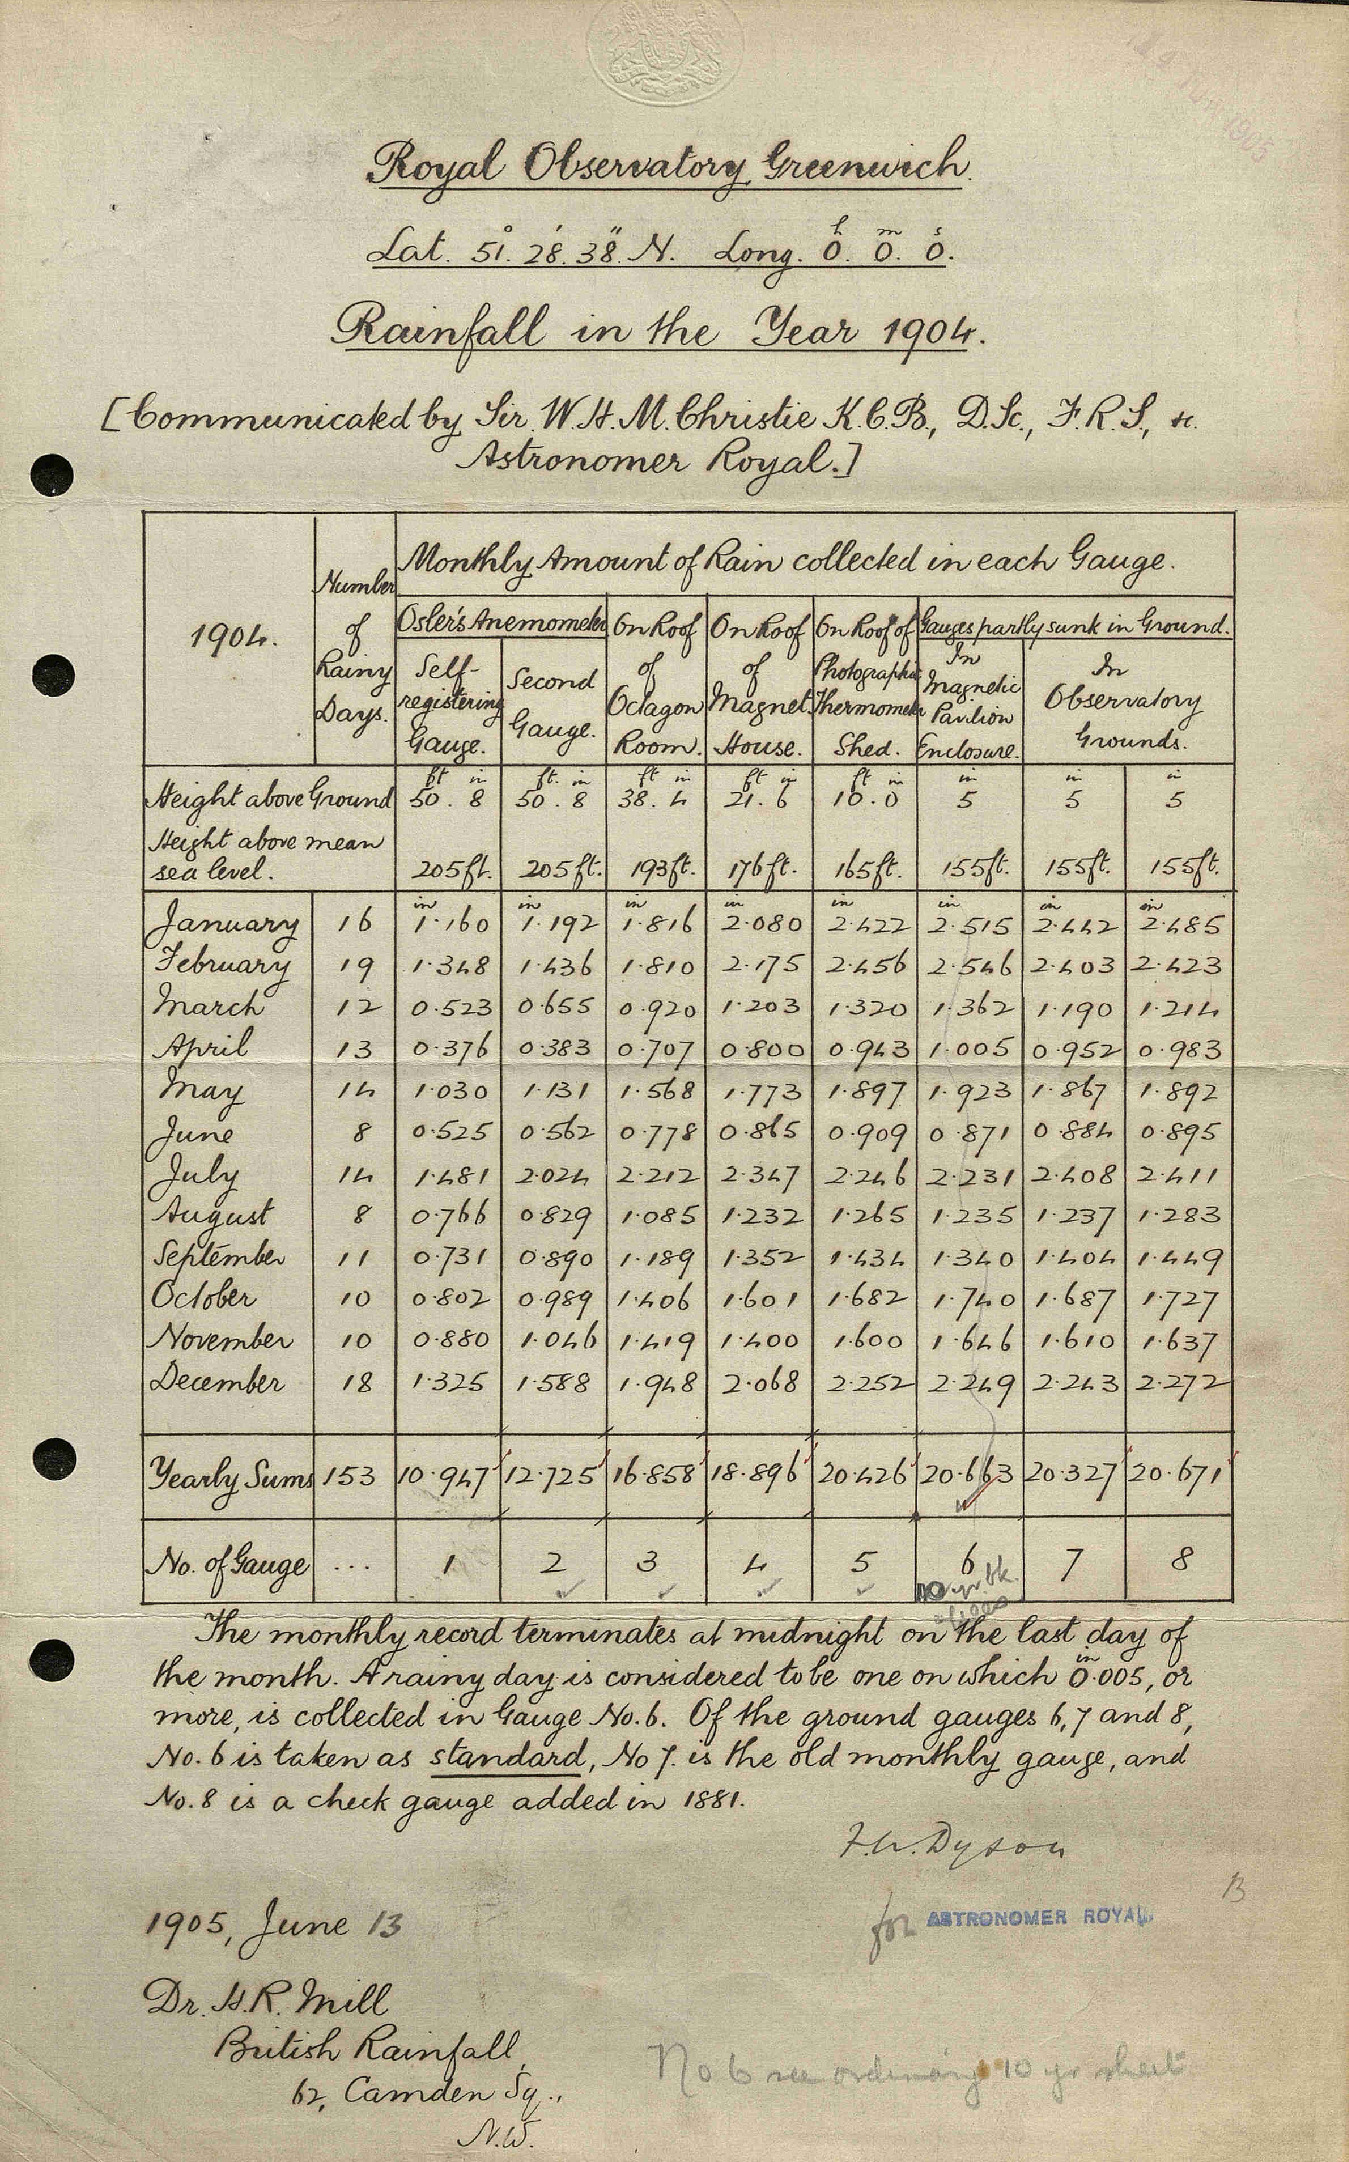 Royal Observatory Greenwich.
Lat. 51°. 28'. 38". N. Long. 0h. 0m. 0s.
Rainfall in the Year 1904.
[Communicated by Sir W. H. M. Christie K.C.B., D.Sc., F.R.S., &c.
Astronomer Royal.]
1904. Number of Rainy Days. Monthly Amount of Rain collected in each Gauge.
Osler's Anemometer On Roof of Octagon Room. On Roof of Magnet House. On Roof of Photographic Thermometer Shed. Gauges partly sunk in Ground.
Self-registering Gauge. Second Gauge. In Magnetic Pavilion Enclosure. In Observatory Grounds.
ft in ft. in ft in ft in ft in in in in
Height above Ground 50. 8 50. 8 38. 4 21. 6 10. 0 5 5 5
Height above mean
sea level. 205ft. 205ft. 193ft. 176ft. 165ft. 155ft. 155ft. 155ft.
in in in in in in in in
January 16 1.160 1.192 1.816 2.080 2.422 2.515 2.442 2.485
February 19 1.348 1.436 1.810 2.175 2.456 2.546 2.403 2.423
March 12 0.523 0.655 0.920 1.203 1.320 1.362 1.190 1.214
April 13 0.376 0.383 0.707 0.800 0.943 1.005 0.952 0.983
May 14 1.030 1.131 1.568 1.773 1.897 1.923 1.867 1.892
June 8 0.525 0.562 0.778 0.865 0.909 0.871 0.884 0.895
July 14 1.481 2.024 2.212 2.347 2.246 2.231 2.408 2.411
August 8 0.766 0.829 1.085 1.232 1.265 1.235 1.237 1.283
September 11 0.731 0.890 1.189 1.352 1.434 1.340 1.404 1.449
October 10 0.802 0.989 1.406 1.601 1.682 1.740 1.687 1.727
November 10 0.880 1.046 1.419 1.400 1.600 1.646 1.610 1.637
December 18 1.325 1.588 1.948 2.068 2.252 2.249 2.243 2.272
Yearly Sums 153 10.947 12.725 16.858 18.896 20.426 20.663 20.327 20.671
No. of Gauge ... 1 2 3 4 5 6 7 8
10 yr bk.
The monthly record terminates at midnight on the last day of
the month. A rainy day is considered to be one on which 0in.005, or
more, is collected in Gauge No. 6. Of the ground gauges 6, 7 and 8,
No. 6 is taken as standard, No 7. is the old monthly gauge, and
No. 8 is a check gauge added in 1881.
F. W. Dyson
B
for ASTRONOMER ROYAL
1905, June 13
Dr. H. R. Mill
British Rainfall,
62, Camden Sq.,
N.W.
No 6 see ordinary 10 yr sheet